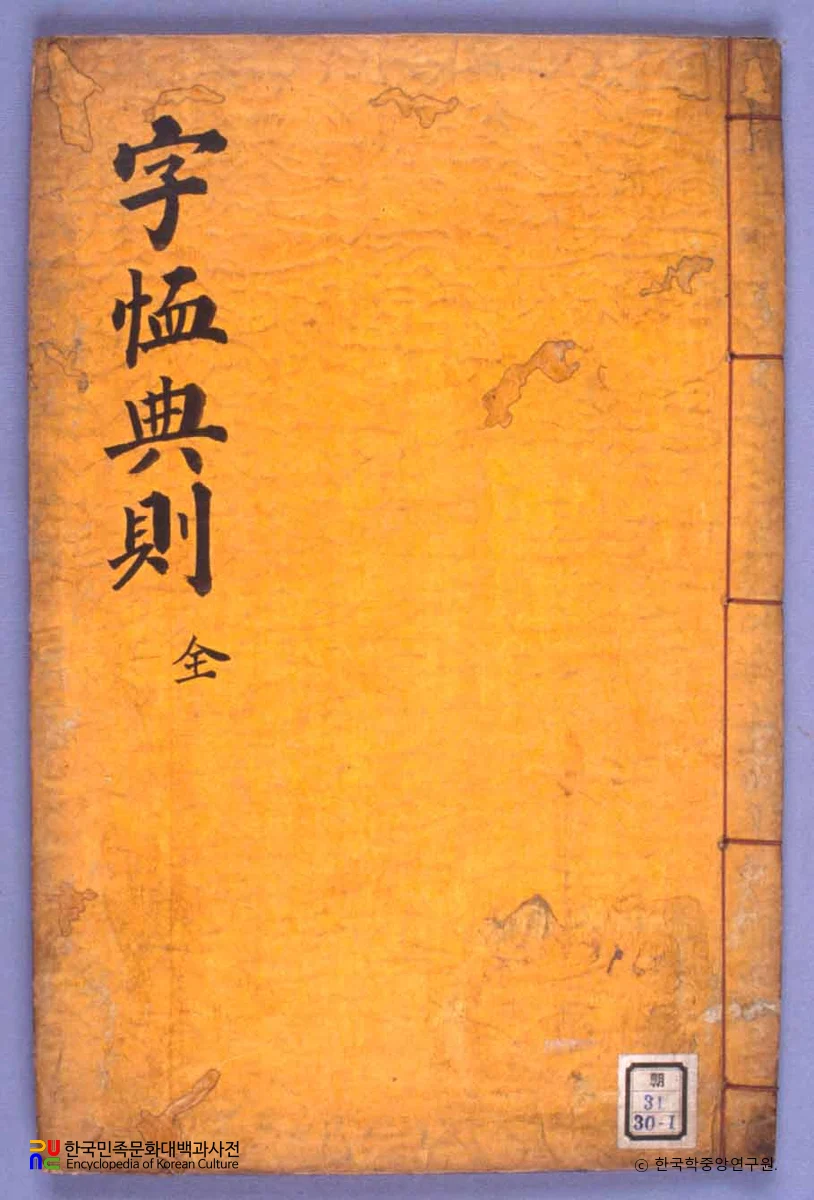 字恤典則
全
朝
31
30-1
한국민족문화대백과사전
Encyclopedia of Korean Culture
© 한국학중앙연구원.